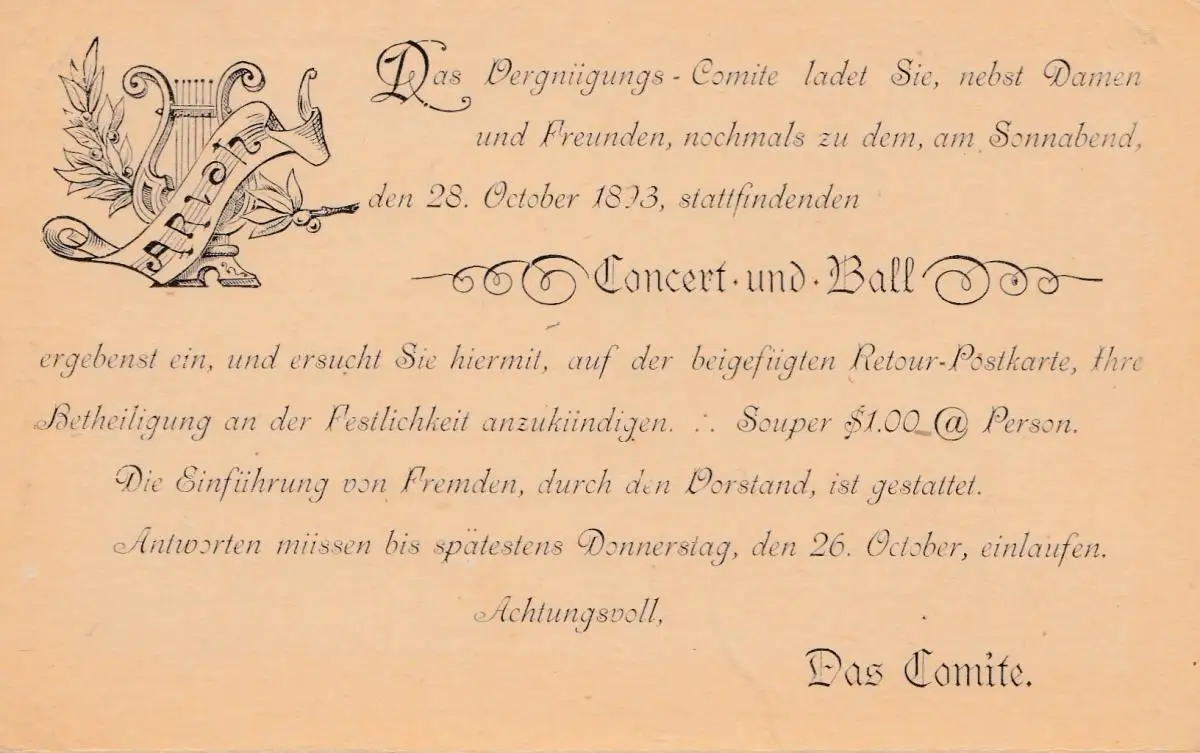 ARION
Das Vergnügungs-Comite ladet Sie, nebst Damen
und Freunden, nochmals zu dem, am Sonnabend,
den 28. October 1893, stattfindenden
Concert · und · Ball
ergebenst ein, und ersucht Sie hiermit, auf der beigefügten Retour-Postkarte, Ihre
Betheiligung an der Festlichkeit anzukündigen. ∴ Souper $1.00 @ Person.
Die Einführung von Fremden, durch den Vorstand, ist gestattet.
Antworten müssen bis spätestens Donnerstag, den 26. October, einlaufen.
Achtungsvoll,
Das Comite.